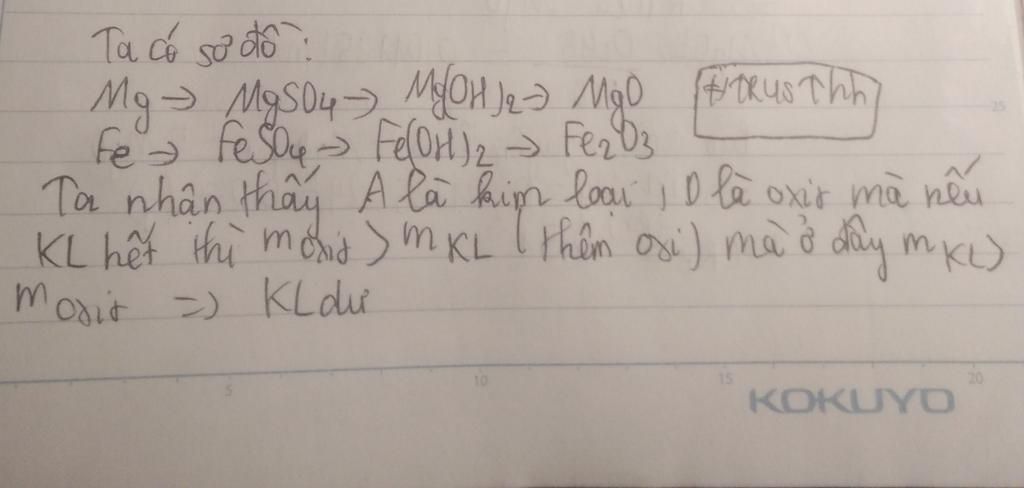 Ta có sơ đồ:
Mg → MgSO4 → Mg(OH)2 → MgO
#TRUSThh
Fe → FeSO4 → Fe(OH)2 → Fe2O3
Ta nhận thấy A là kim loại, D là oxit mà nếu
KL hết thì m oxit > m KL (thêm oxi) mà ở đây m KL >
m oxit => KL dư
25
5 10 15 20
KOKUYO